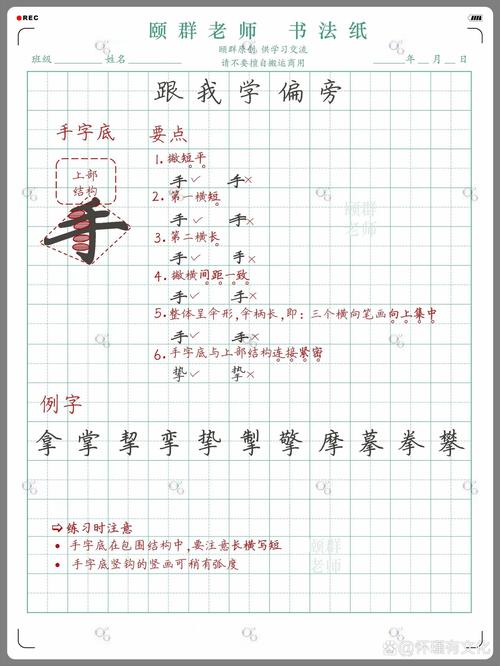 REC
颐群老师 书法纸
颐群原创 供学习交流
请不要擅自搬运商用
班级 姓名 年 月 日
跟我学偏旁
手字底
要点
上部
结构
手
1.撇短平
手✓ 手×
2.第一横短
手✓ 手×
3.第二横长
手✓ 手×
4.撇横间距一致
手✓ 手×
5.整体呈伞形,伞柄长,即:三个横向笔画向上集中
手✓ 手×
6.手字底与上部结构连接紧密
挚✓ 挚×
颐群
老师
例字
拿掌挈孪挚掣擎摩摹拳攀
⇨练习时注意
• 手字底在包围结构中,要注意长横写短
• 手字底竖钩的竖画可稍有弧度
颐群
老师
@怀瑾有文化